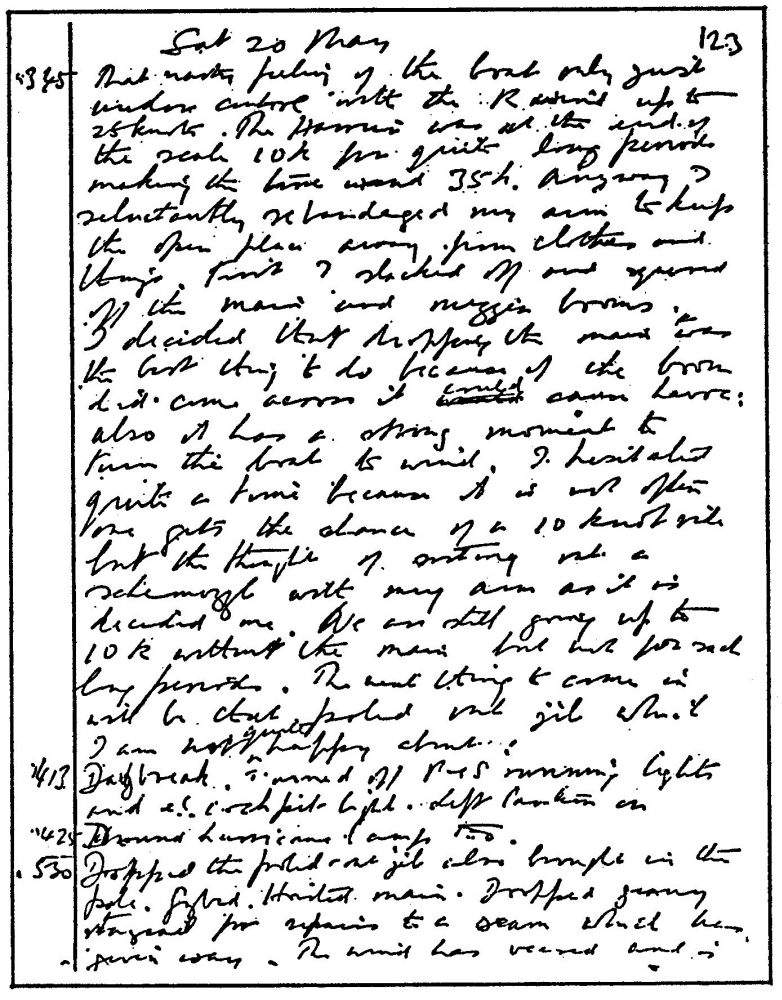 Sat 20 May 123
0345 That nasty feeling of the boat only just
under control with the R wind up to
25 knots. The Harrier was at the end of
the scale 10k for quite long periods
making the true wind 35k. Anyway I
reluctantly rebandaged my arm to keep
the open place away from clothes and
things. First I slacked off and squared
off the main and mizzen booms.
I decided that dropping the main was
the best thing to do because if the boom
did come across it could cause havoc;
also it has a strong moment to
turn the boat to wind. I hesitated
quite a time because it is not often
one gets the chance of a 10 knot ride
but the thought of sorting out a
schemozzle with my arm as it is
decided me. We are still going up to
10k without the main but not for such
long periods. The next thing to come in
will be that poled out jib which
I am not quite happy about.
0413 Daybreak. Turned off P & S running lights
and el. cockpit light. Left on
0425 Doused hurricane lamps too.
0530 Dropped the poled-out jib also brought in the
pole. Gybed. Hoisted main. Dropped genny
staysail for repairs to a seam which has
given way. The wind has veered and is